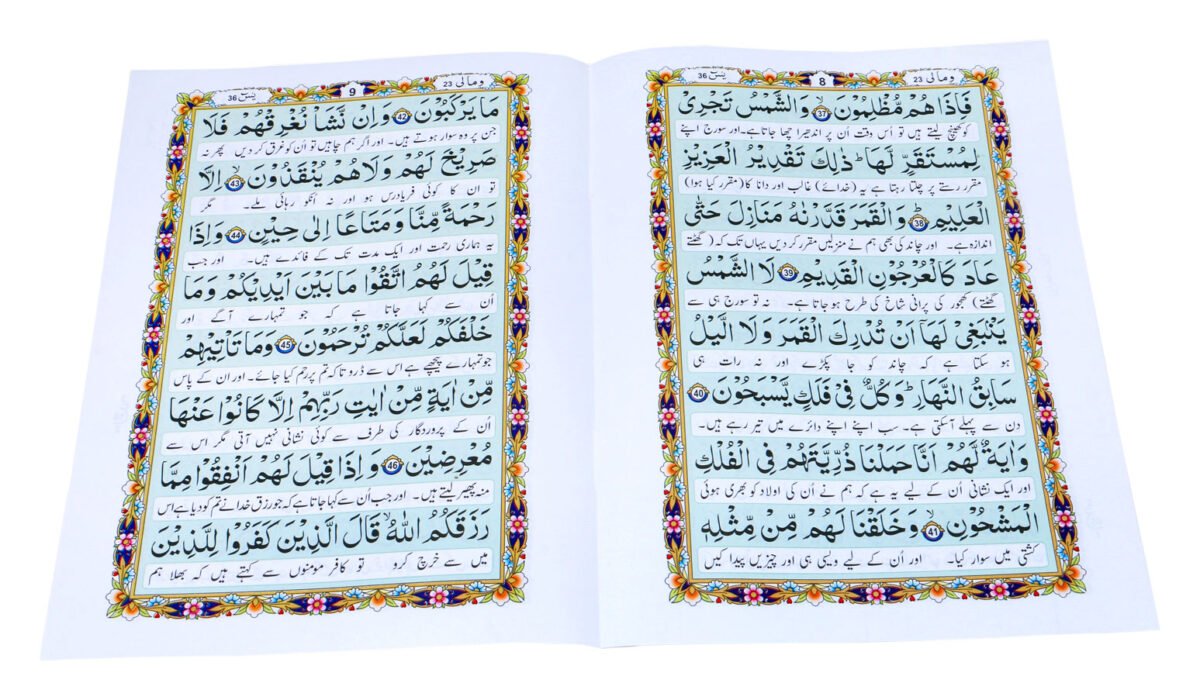 ومالی 23
8
یٰسٓ 36
فَاِذَا هُمْ مُّظْلِمُوْنَ 37 وَالشَّمْسُ تَجْرِىْ
کو کھینچ لیتے ہیں تو اُس وقت اُن پر اندھیرا چھا جاتا ہے۔ اور سورج اپنے
لِمُسْتَقَرٍّ لَّهَا ؕ ذٰلِكَ تَقْدِيْرُ الْعَزِيْزِ
مقرر رستے پر چلتا رہتا ہے یہ (خدائے) غالب اور دانا کا (مقرر کیا ہوا)
الْعَلِيْمِ ؕ 38 وَالْقَمَرَ قَدَّرْنٰهُ مَنَازِلَ حَتّٰى
اندازہ ہے۔ اور چاند کی بھی ہم نے منزلیں مقرر کر دیں یہاں تک کہ (گھٹتے
عَادَ كَالْعُرْجُوْنِ الْقَدِيْمِ 39 لَا الشَّمْسُ
گھٹتے) کھجور کی پرانی شاخ کی طرح ہو جاتا ہے۔ نہ تو سورج ہی سے
يَنْۢبَغِىْ لَهَاۤ اَنْ تُدْرِكَ الْقَمَرَ وَلَا الَّيْلُ
ہو سکتا ہے کہ چاند کو جا پکڑے اور نہ رات ہی
سَابِقُ النَّهَارِ ؕ وَكُلٌّ فِىْ فَلَكٍ يَّسْبَحُوْنَ 40
دن سے پہلے آسکتی ہے۔ سب اپنے اپنے دائرے میں تیر رہے ہیں۔
وَاٰيَةٌ لَّهُمْ اَنَّا حَمَلْنَا ذُرِّيَّتَهُمْ فِى الْفُلْكِ
اور ایک نشانی اُن کے لیے یہ ہے کہ ہم نے اُن کی اولاد کو بھری ہوئی
الْمَشْحُوْنِۙ 41 وَخَلَقْنَا لَهُمْ مِّنْ مِّثْلِهٖ
کشتی میں سوار کیا۔ اور اُن کے لیے ویسی ہی اور چیزیں پیدا کیں
ومالی 23
9
یٰسٓ 36
مَا يَرْكَبُوْنَ 42 وَاِنْ نَّشَاْ نُغْرِقْهُمْ فَلَا
جن پر وہ سوار ہوتے ہیں۔ اور اگر ہم چاہیں تو اُن کو غرق کر دیں پھر نہ
صَرِيْخَ لَهُمْ وَلَا هُمْ يُنْقَذُوْنَۙ 43 اِلَّا
تو ان کا کوئی فریادرس ہو اور نہ اُنکو رہائی ملے۔ مگر
رَحْمَةً مِّنَّا وَمَتَاعًا اِلٰى حِيْنٍ 44 وَاِذَا
یہ ہماری رحمت اور ایک مدت تک کے فائدے ہیں۔ اور جب
قِيْلَ لَهُمُ اتَّقُوْا مَا بَيْنَ اَيْدِيْكُمْ وَمَا
اُن سے کہا جاتا ہے کہ جو تمہارے آگے اور
خَلْفَكُمْ لَعَلَّكُمْ تُرْحَمُوْنَ 45 وَمَا تَاْتِيْهِمْ
جو تمہارے پیچھے ہے اس سے ڈرو تاکہ تم پر رحم کیا جائے۔ اور ان کے پاس
مِّنْ اٰيَةٍ مِّنْ اٰيٰتِ رَبِّهِمْ اِلَّا كَانُوْا عَنْهَا
اُن کے پروردگار کی طرف سے کوئی نشانی نہیں آتی مگر اس سے
مُعْرِضِيْنَ 46 وَاِذَا قِيْلَ لَهُمْ اَنْفِقُوْا مِمَّا
منہ پھیر لیتے ہیں۔ اور جب اُن سے کہا جاتا ہے کہ جو رزق خدا نے تم کو دیا ہے اس
رَزَقَكُمُ اللّٰهُۙ قَالَ الَّذِيْنَ كَفَرُوْا لِلَّذِيْنَ
میں سے خرچ کرو تو کافر مومنوں سے کہتے ہیں کہ بھلا ہم